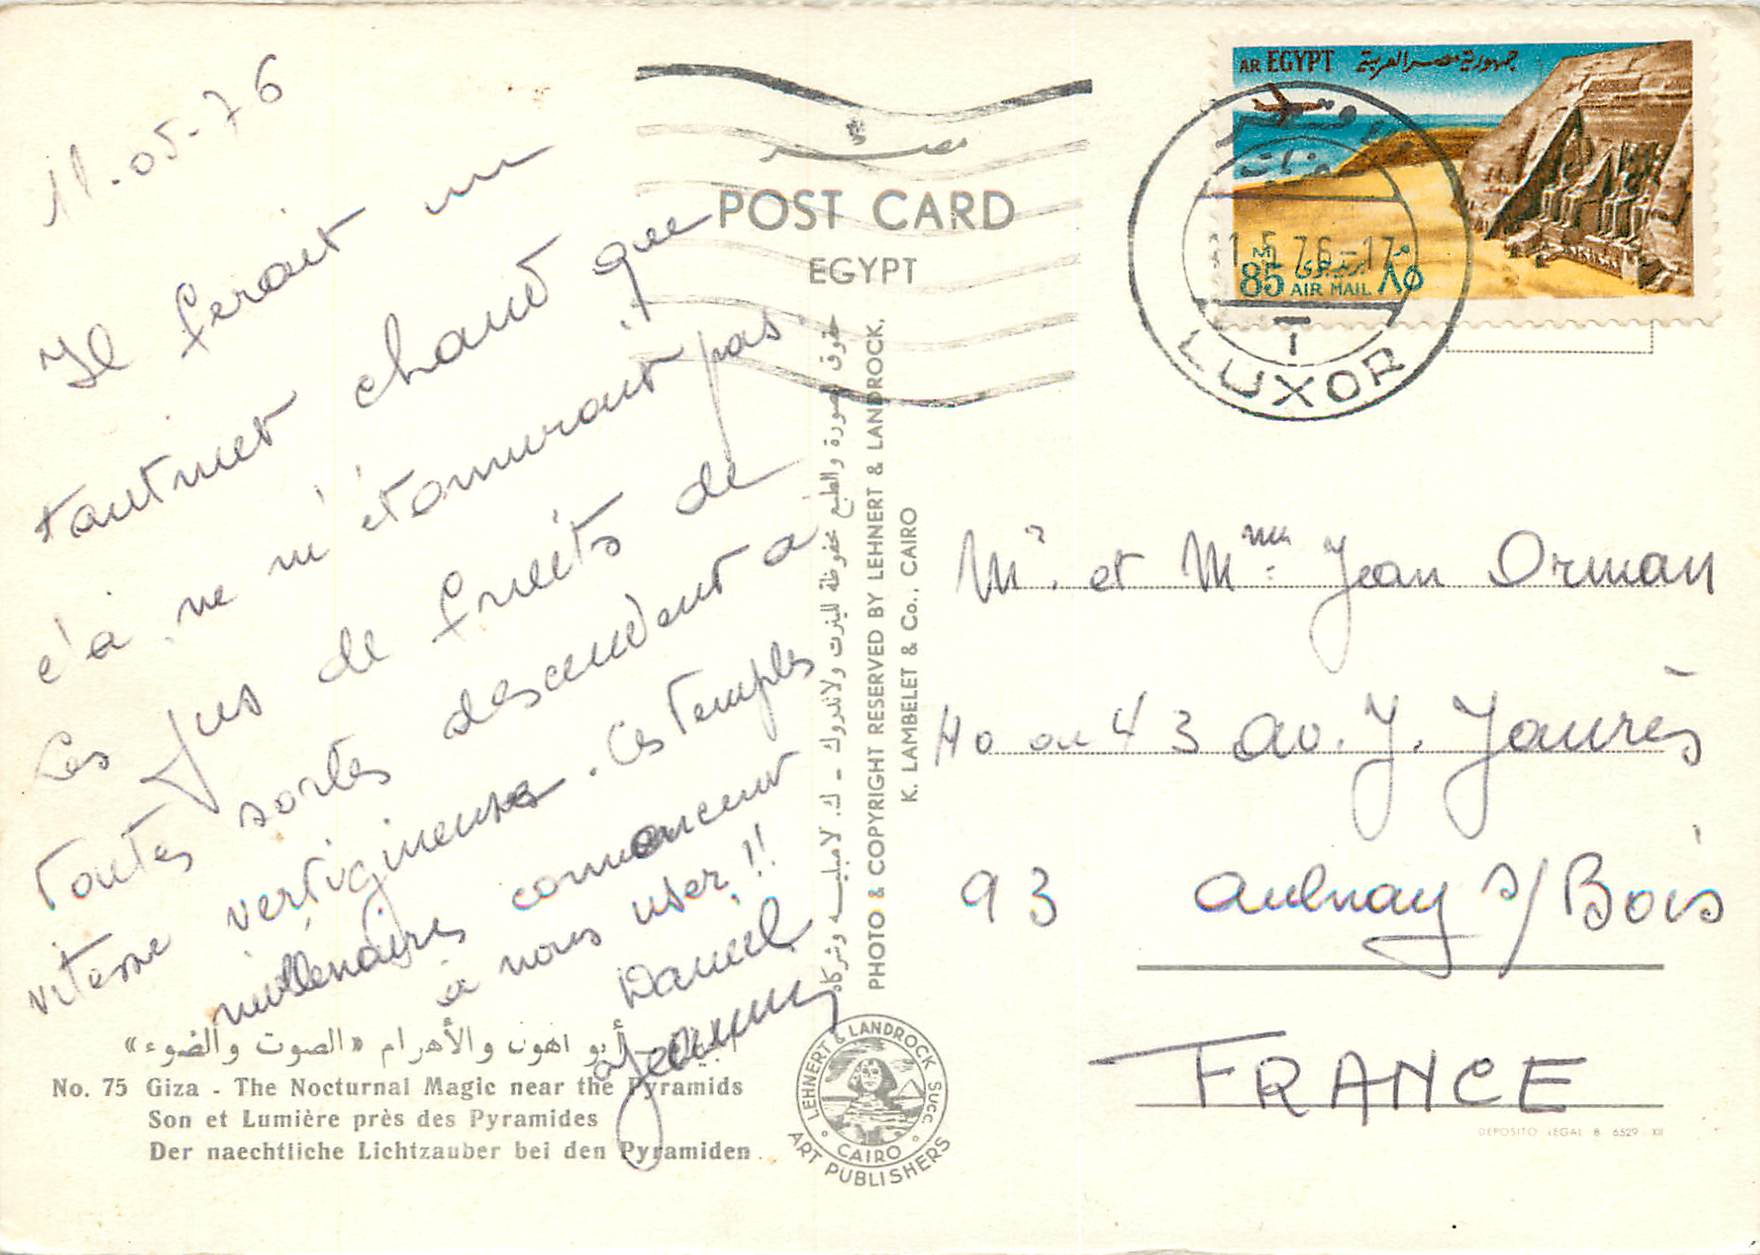 11-05-76
Il ferait un
tantinet chaud que
c'a ne m'étonnerait pas
Les jus de fruits de
toutes sortes descendent a
vitesse vertigineuse. Ces Temples
millenaires commencent
à nous user!!
Daniel
POST CARD
EGYPT
مصر
AR EGYPT جمهورية مصر العربية
M 85 AIR MAIL بريد جوى ٨٥ م
الأقصر
1.5.76-17
1
LUXOR
حقوق الصورة والطبع محفوظة للينرت ولاندروك - ك. لامبليه وشركاه
PHOTO & COPYRIGHT RESERVED BY LEHNERT & LANDROCK,
K. LAMBELET & Co., CAIRO
Mr. et Mme. Jean Orman
40 ou 43 av. J. Jaurès
93 Aulnay s/ Bois
FRANCE
أبو الهول والأهرام «الصوت والضوء»
No. 75 Giza - The Nocturnal Magic near the Pyramids
Son et Lumière près des Pyramides
Der naechtliche Lichtzauber bei den Pyramiden
LEHNERT & LANDROCK SUCC. CAIRO
ART PUBLISHERS
DEPOSITO LEGAL B 6529 XII